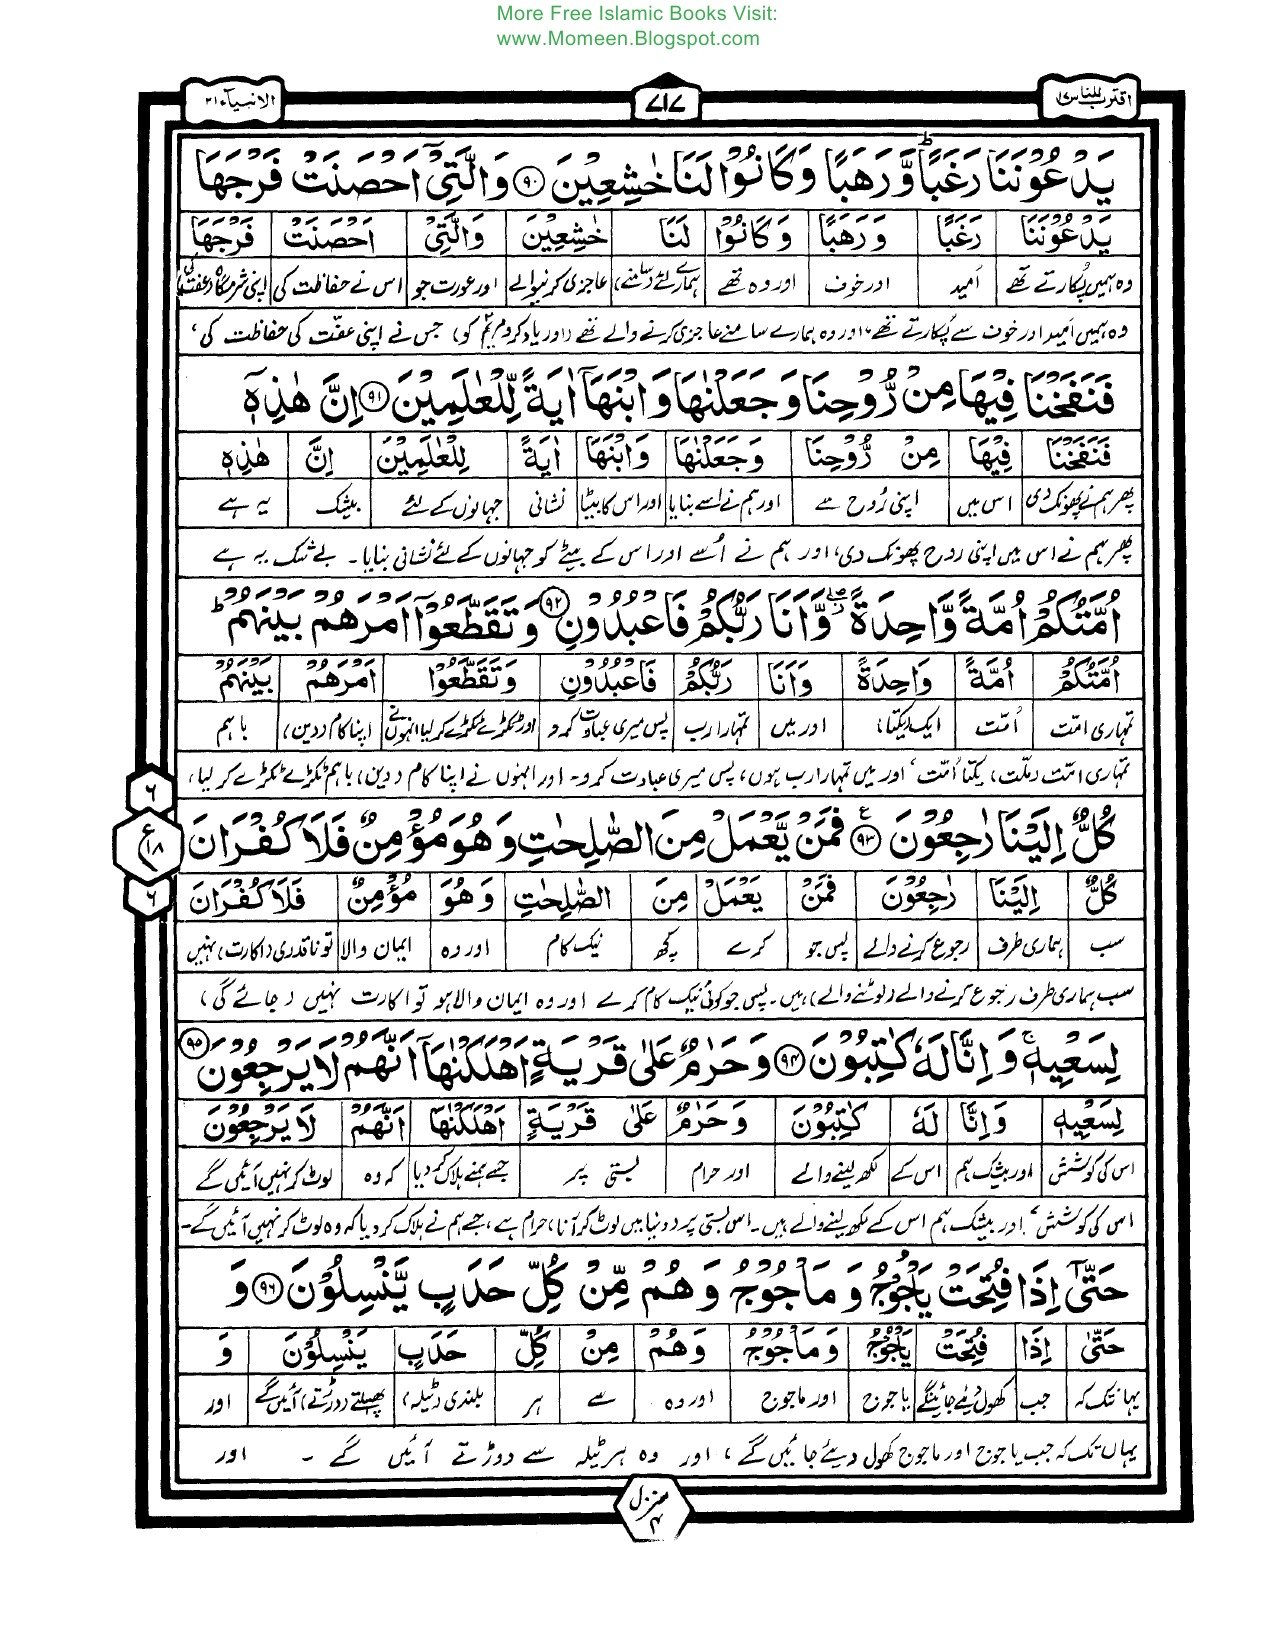 More Free Islamic Books Visit:
www.Momeen.Blogspot.com
اقترب للناس ۱۷ ۷۱۷ الانبیآء ۲۱
یَدْعُوْنَنَا رَغَبًا وَّرَهَبًا ؕ وَكَانُوْا لَنَا خٰشِعِیْنَ ۝۹۰ وَالَّتِیْۤ اَحْصَنَتْ فَرْجَهَا
یَدْعُوْنَنَا رَغَبًا وَرَهَبًا وَكَانُوْا لَنَا خٰشِعِیْنَ وَالَّتِیْ اَحْصَنَتْ فَرْجَهَا
وہ ہمیں پکارتے تھے امید اور خوف اور وہ تھے ہمارے لئے (سامنے) عاجزی کرنیوالے اور عورت جو اس نے حفاظت کی اپنی شرمگاہ (عفت کی)
وہ ہمیں امید اور خوف سے پکارتے تھے، اور وہ ہمارے سامنے عاجزی کرنے والے تھے (اور یاد کرو مریم کو) جس نے اپنی عفّت کی حفاظت کی،
فَنَفَخْنَا فِیْهَا مِنْ رُّوْحِنَا وَجَعَلْنٰهَا وَابْنَهَاۤ اٰیَةً لِّلْعٰلَمِیْنَ ۝۹۱ اِنَّ هٰذِهٖۤ
فَنَفَخْنَا فِیْهَا مِنْ رُّوْحِنَا وَجَعَلْنٰهَا وَابْنَهَا اٰیَةً لِلْعٰلَمِیْنَ اِنَّ هٰذِهٖ
پھر ہم نے پھونک دی اس میں اپنی رُوح سے اور ہم نے اسے بنایا اور اس کا بیٹا نشانی جہانوں کے لئے بیشک یہ ہے
پھر ہم نے اس میں اپنی روح پھونک دی، اور ہم نے اُسے اور اس کے بیٹے کو جہانوں کے لئے نشانی بنایا۔ بے شک یہ ہے
اُمَّتُكُمْ اُمَّةً وَّاحِدَةً ۖ وَّاَنَا رَبُّكُمْ فَاعْبُدُوْنِ ۝۹۲ وَتَقَطَّعُوْۤا اَمْرَهُمْ بَیْنَهُمْ ؕ
اُمَّتُكُمْ اُمَّةً وَاحِدَةً وَاَنَا رَبُّكُمْ فَاعْبُدُوْنِ وَتَقَطَّعُوْا اَمْرَهُمْ بَیْنَهُمْ
تمہاری امّت اُمّت ایک (یکتا) اور میں تمہارا رب پس میری عبادت کرو اور ٹکڑے ٹکڑے کر لیا انہوں نے اپنا کام (دین) باہم
تمہاری امّت (ملّت) یکتا اُمّت، اور میں تمہارا رب ہوں، پس میری عبادت کرو۔ اور انہوں نے اپنا کام (دین) باہم ٹکڑے ٹکڑے کر لیا،
۶
ع ۱۸
۶
كُلٌّ اِلَیْنَا رٰجِعُوْنَ ۝۹۳ ع فَمَنْ یَّعْمَلْ مِنَ الصّٰلِحٰتِ وَهُوَ مُؤْمِنٌ فَلَا كُفْرَانَ
كُلٌّ اِلَیْنَا رٰجِعُوْنَ فَمَنْ یَعْمَلْ مِنَ الصّٰلِحٰتِ وَهُوَ مُؤْمِنٌ فَلَا كُفْرَانَ
سب ہماری طرف رجوع کرنے والے پس جو کرے کچھ نیک کام اور وہ ایمان والا تو ناقدری (اکارت) نہیں
سب ہماری طرف رجوع کرنے والے (لوٹنے والے) ہیں۔ پس جو کوئی نیک کام کرے اور وہ ایمان والا ہو تو اکارت نہیں (جائے گی)
لِسَعْیِهٖ ۚ وَاِنَّا لَهٗ كٰتِبُوْنَ ۝۹۴ وَحَرٰمٌ عَلٰی قَرْیَةٍ اَهْلَكْنٰهَاۤ اَنَّهُمْ لَا یَرْجِعُوْنَ ۝۹۵
لِسَعْیِهٖ وَاِنَّا لَهٗ كٰتِبُوْنَ وَحَرٰمٌ عَلٰی قَرْیَةٍ اَهْلَكْنٰهَا اَنَّهُمْ لَا یَرْجِعُوْنَ
اس کی کوشش اور بیشک ہم اس کے لکھ لینے والے اور حرام بستی پر جسے ہم نے ہلاک کر دیا کہ وہ لوٹ کر نہیں آئیں گے
اس کی کوشش، اور بیشک ہم اس کے لکھ لینے والے ہیں۔ اس بستی پر (دنیا میں لوٹ کر آنا) حرام ہے، جسے ہم نے ہلاک کر دیا کہ وہ لوٹ کر نہیں آئیں گے۔
حَتّٰۤی اِذَا فُتِحَتْ یَاْجُوْجُ وَمَاْجُوْجُ وَهُمْ مِّنْ كُلِّ حَدَبٍ یَّنْسِلُوْنَ ۝۹۶ وَ
حَتّٰی اِذَا فُتِحَتْ یَاْجُوْجُ وَمَاْجُوْجُ وَهُمْ مِنْ كُلِّ حَدَبٍ یَنْسِلُوْنَ وَ
یہانتک کہ جب کھول دیئے جائینگے یاجوج اور ماجوج اور وہ سے ہر بلندی (ٹیلہ) پھسلتے (دوڑتے) آئیں گے اور
یہاں تک کہ جب یاجوج اور ماجوج کھول دیئے جائیں گے، اور وہ ہر ٹیلہ سے دوڑتے آئیں گے ۔ اور
منزل ۴